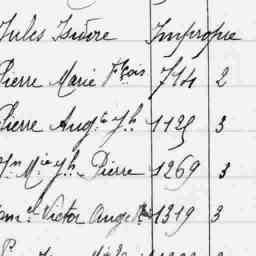 Jules Isidore Impropre
Pierre Marie Fçois 744 2
Pierre Augte Jh 1125 3
Jn Mie Jh Pierre 1269 3
Victor Ange 1319 3